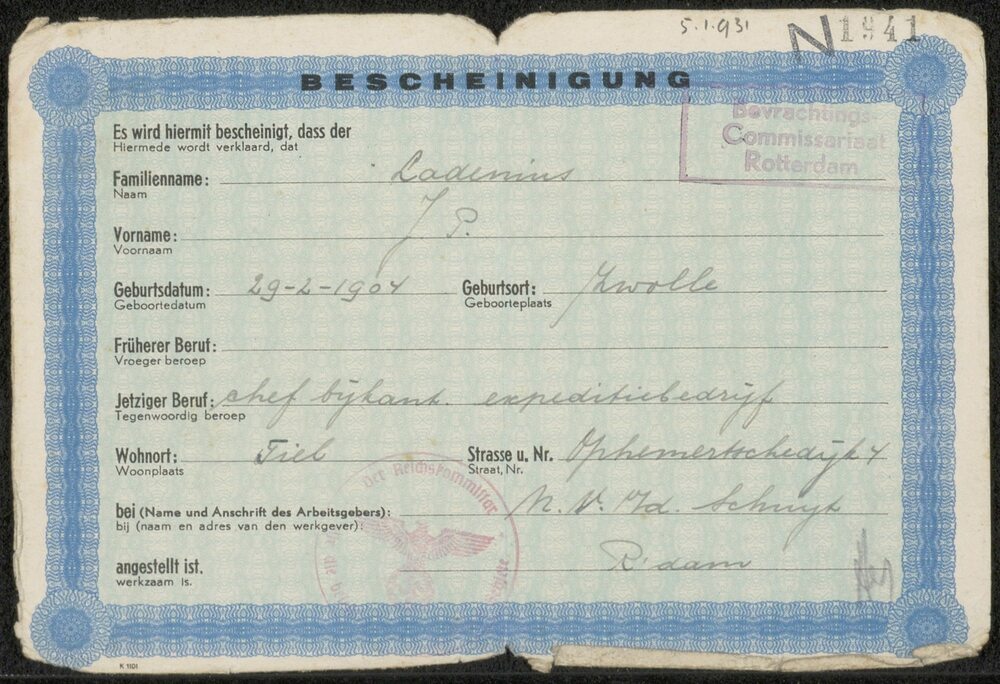 5.1.931
N 1941
BESCHEINIGUNG
Bevrachtings-
Commissariaat
Rotterdam
Es wird hiermit bescheinigt, dass der
Hiermede wordt verklaard, dat
Familienname: Ladenius
Naam
Vorname: J P.
Voornaam
Geburtsdatum: 29-2-1904 Geburtsort: Zwolle
Geboortedatum Geboorteplaats
Früherer Beruf:
Vroeger beroep
Jetziger Beruf: chef bijkant. expeditiebedrijf
Tegenwoordig beroep
Wohnort: Tiel Strasse u. Nr. Ophemertschedijk 4
Woonplaats Straat, Nr.
Der Reichskommissar
bei (Name und Anschrift des Arbeitsgebers): N.V. Schuyt
bij (naam en adres van den werkgever):
angestellt ist. R'dam
werkzaam is.
K 1101